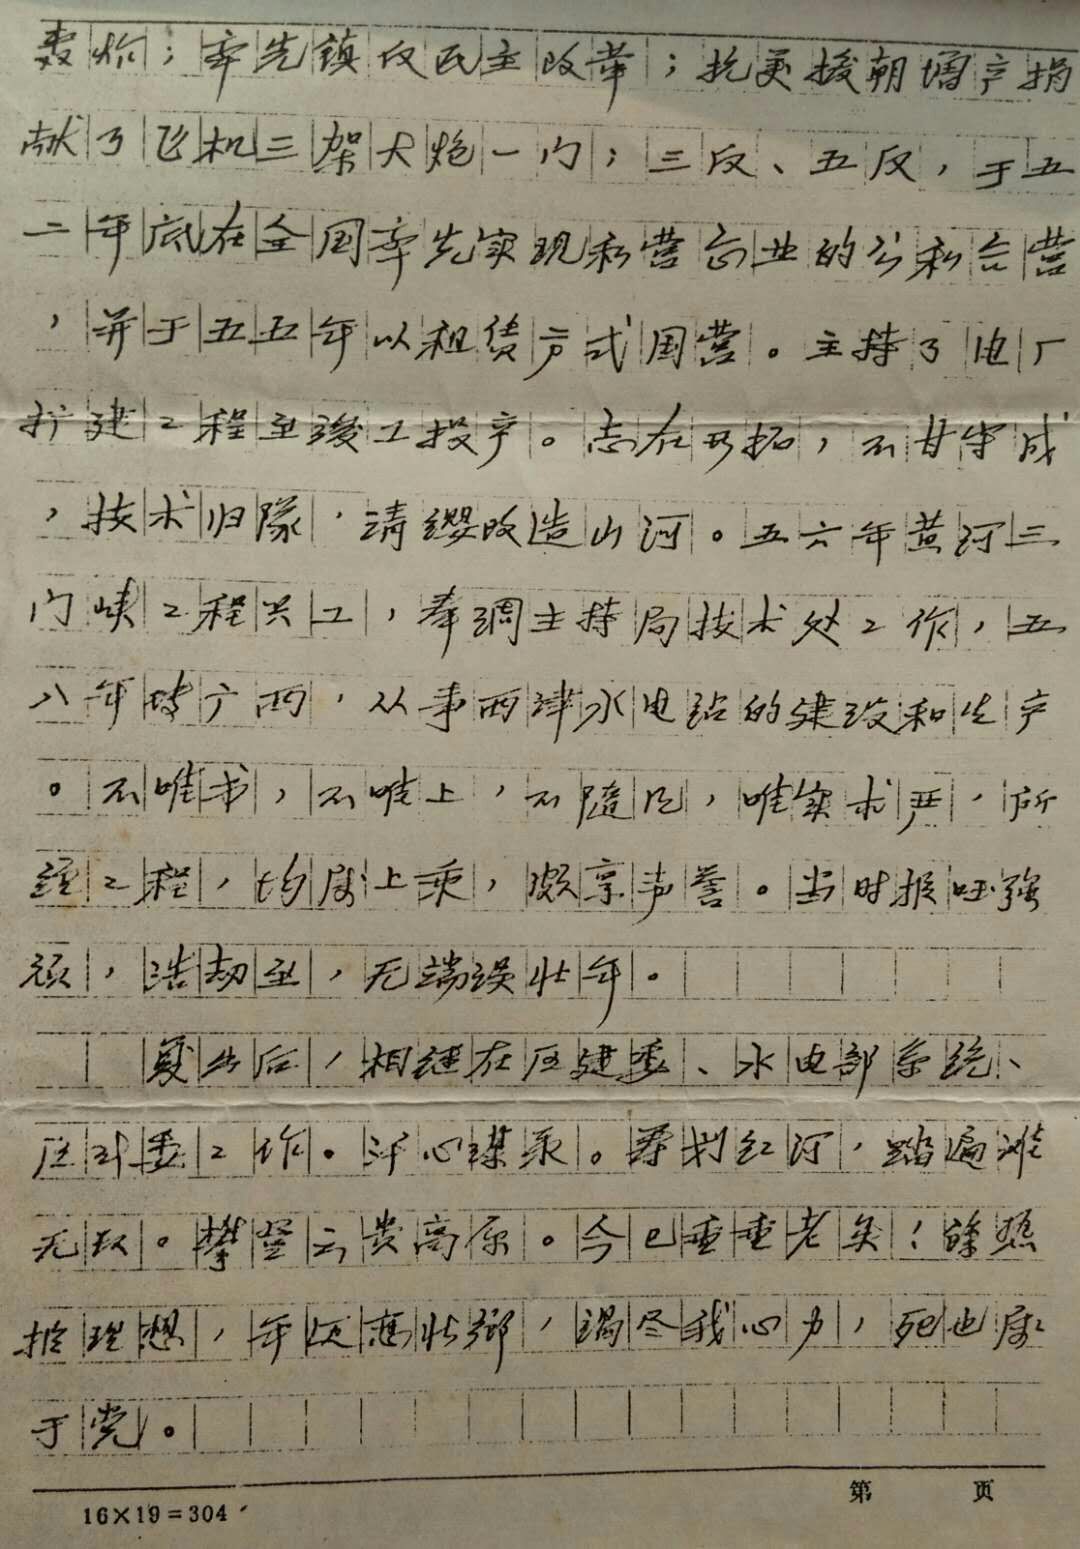 轰炸；率先镇反民主改革；抗美援朝增产捐
献了飞机三架大炮一门；三反、五反，于五
二年底在全国率先实现私营企业的公私合营
，并于五五年以租赁方式国营。主持了电厂
扩建工程至竣工投产。志在开拓，不甘守成
，技术归隊，请缨改造山河。五六年黄河三
门峡工程兴工，奉调主持局技术处工作，五
八年转广西，从事西津水电站的建设和生产
。不唯书，不唯上，不随风，唯实求严，所
经工程，均属上乘，颇享声誉。当时报
，浩劫至，无端误壮年。
复出后，相继在区建委、水电部系统、
区计委工作。汗心谋划红河，踏遍滩
无玖。攀登云贵高原。今已垂垂老矣！馀热
拴理想，年迈恋壮鄉，竭尽我心力，死也属
于党。
16×19=304
第 页